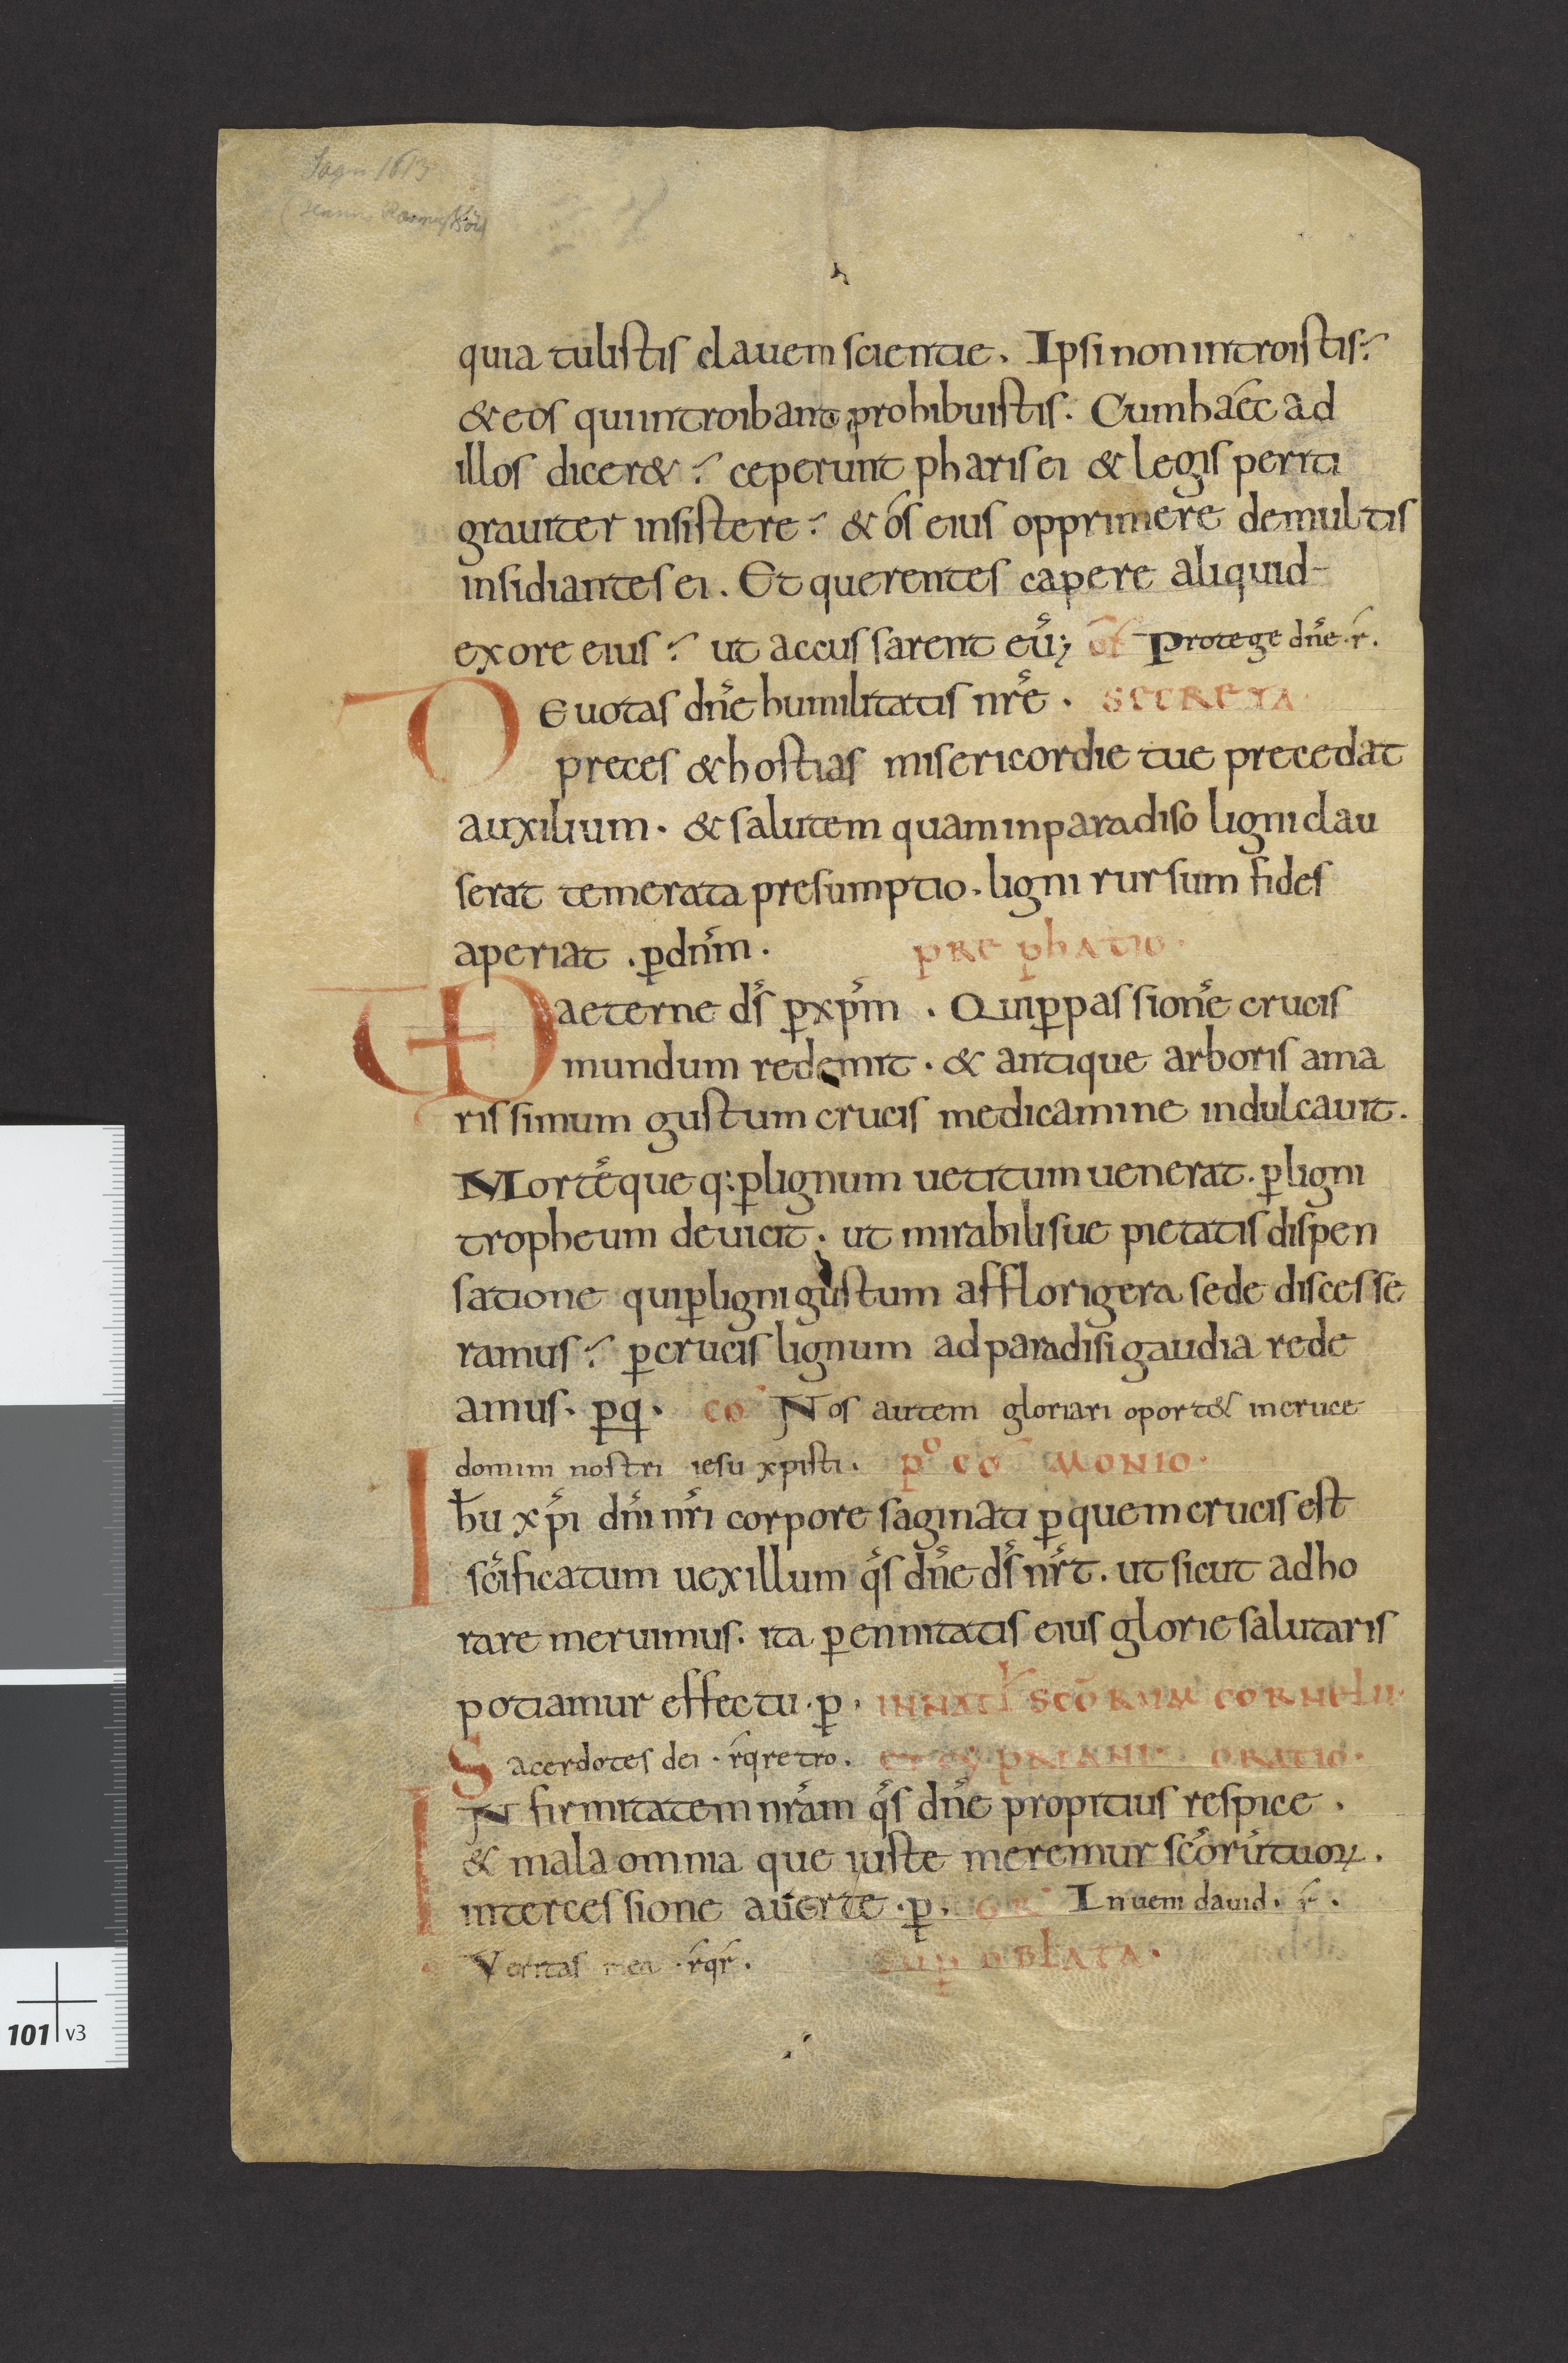 Sogn 1613
quia tulistis clauem scientie. Ipsi non introistis?
& eos qui introibant prohibuistis. Cum haec ad
illos dicer&? ceperunt pharisei & legis periti
grauiter insistere? & ós eius opprimere de multis
insidiantes ei. Et querentes capere aliquid
ex ore eius? ut accussarent eū; of Protege dn̄e .r̄.
DEuotas dn̄e humilitatis nr̄e. SECRETA
preces & hostias misericordie tue precedat
auxilium. & salutem quam in paradiso ligni clau
serat temerata presumptio. ligni rursum fides
aperiat. ꝑ dn̄m. PREPHATIO.
VD aeterne ds̄ ꝑ xp̄m. Qui ꝑ passionē crucis
mundum redemit. & antique arboris ama
rissimum gustum crucis medicamine indulcauit.
Mortēque q: ꝑ lignum uetitum uenerat. ꝑ ligni
tropheum deuicit. ut mirabili sue pietatis dispen
satione qui ꝑ ligni gustum afflorigera sede discesse
ramus? ꝑ crucis lignum ad paradisi gaudia rede
amus. ꝑ q. co Nos autem gloriari oport& in cruce
domini nostri iesu xpisti. po co MONIO.
Ihu xp̄i dn̄i nr̄i corpore saginati ꝑ quem crucis est
sc̄ificatum uexillum qs̄ dn̄e ds̄ nr̄t. ut sicut adho
rare meruimus. ita ꝑennitatis eius glorie salutaris
potiamur effectu. ꝑ. IN NATL SCŌRUM CORNELII
Sacerdotes dei. r̄q retro. ET CYPRIANI. ORATIO.
INfirmitatem nr̄am qs̄ dn̄e propitius respice.
& mala omnia que iuste meremur sc̄orū tuoꝝ.
intercessione auerte. ꝑ. OF Inueni dauid. r̄.
Veritas mea r̄qr̄. SUP OBLATA.